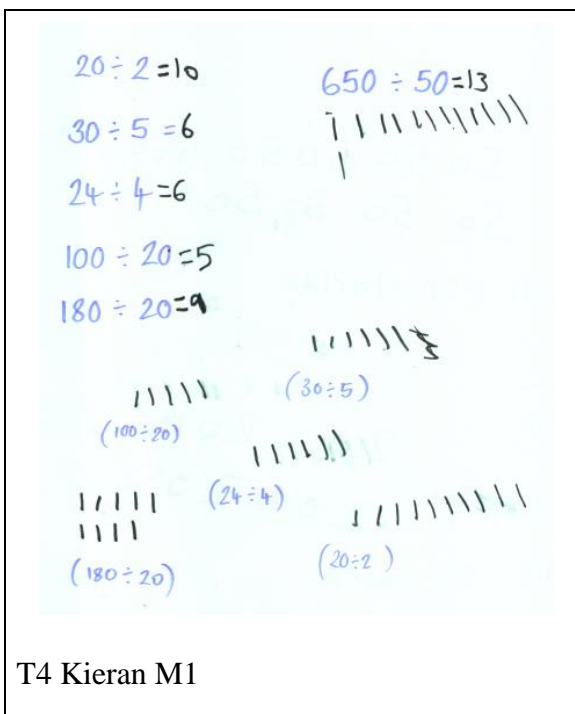 20 ÷ 2 = 10
30 ÷ 5 = 6
24 ÷ 4 = 6
100 ÷ 20 = 5
180 ÷ 20 = 9
650 ÷ 50 = 13
(30 ÷ 5)
(100 ÷ 20)
(24 ÷ 4)
(180 ÷ 20)
(20 ÷ 2)
T4 Kieran M1